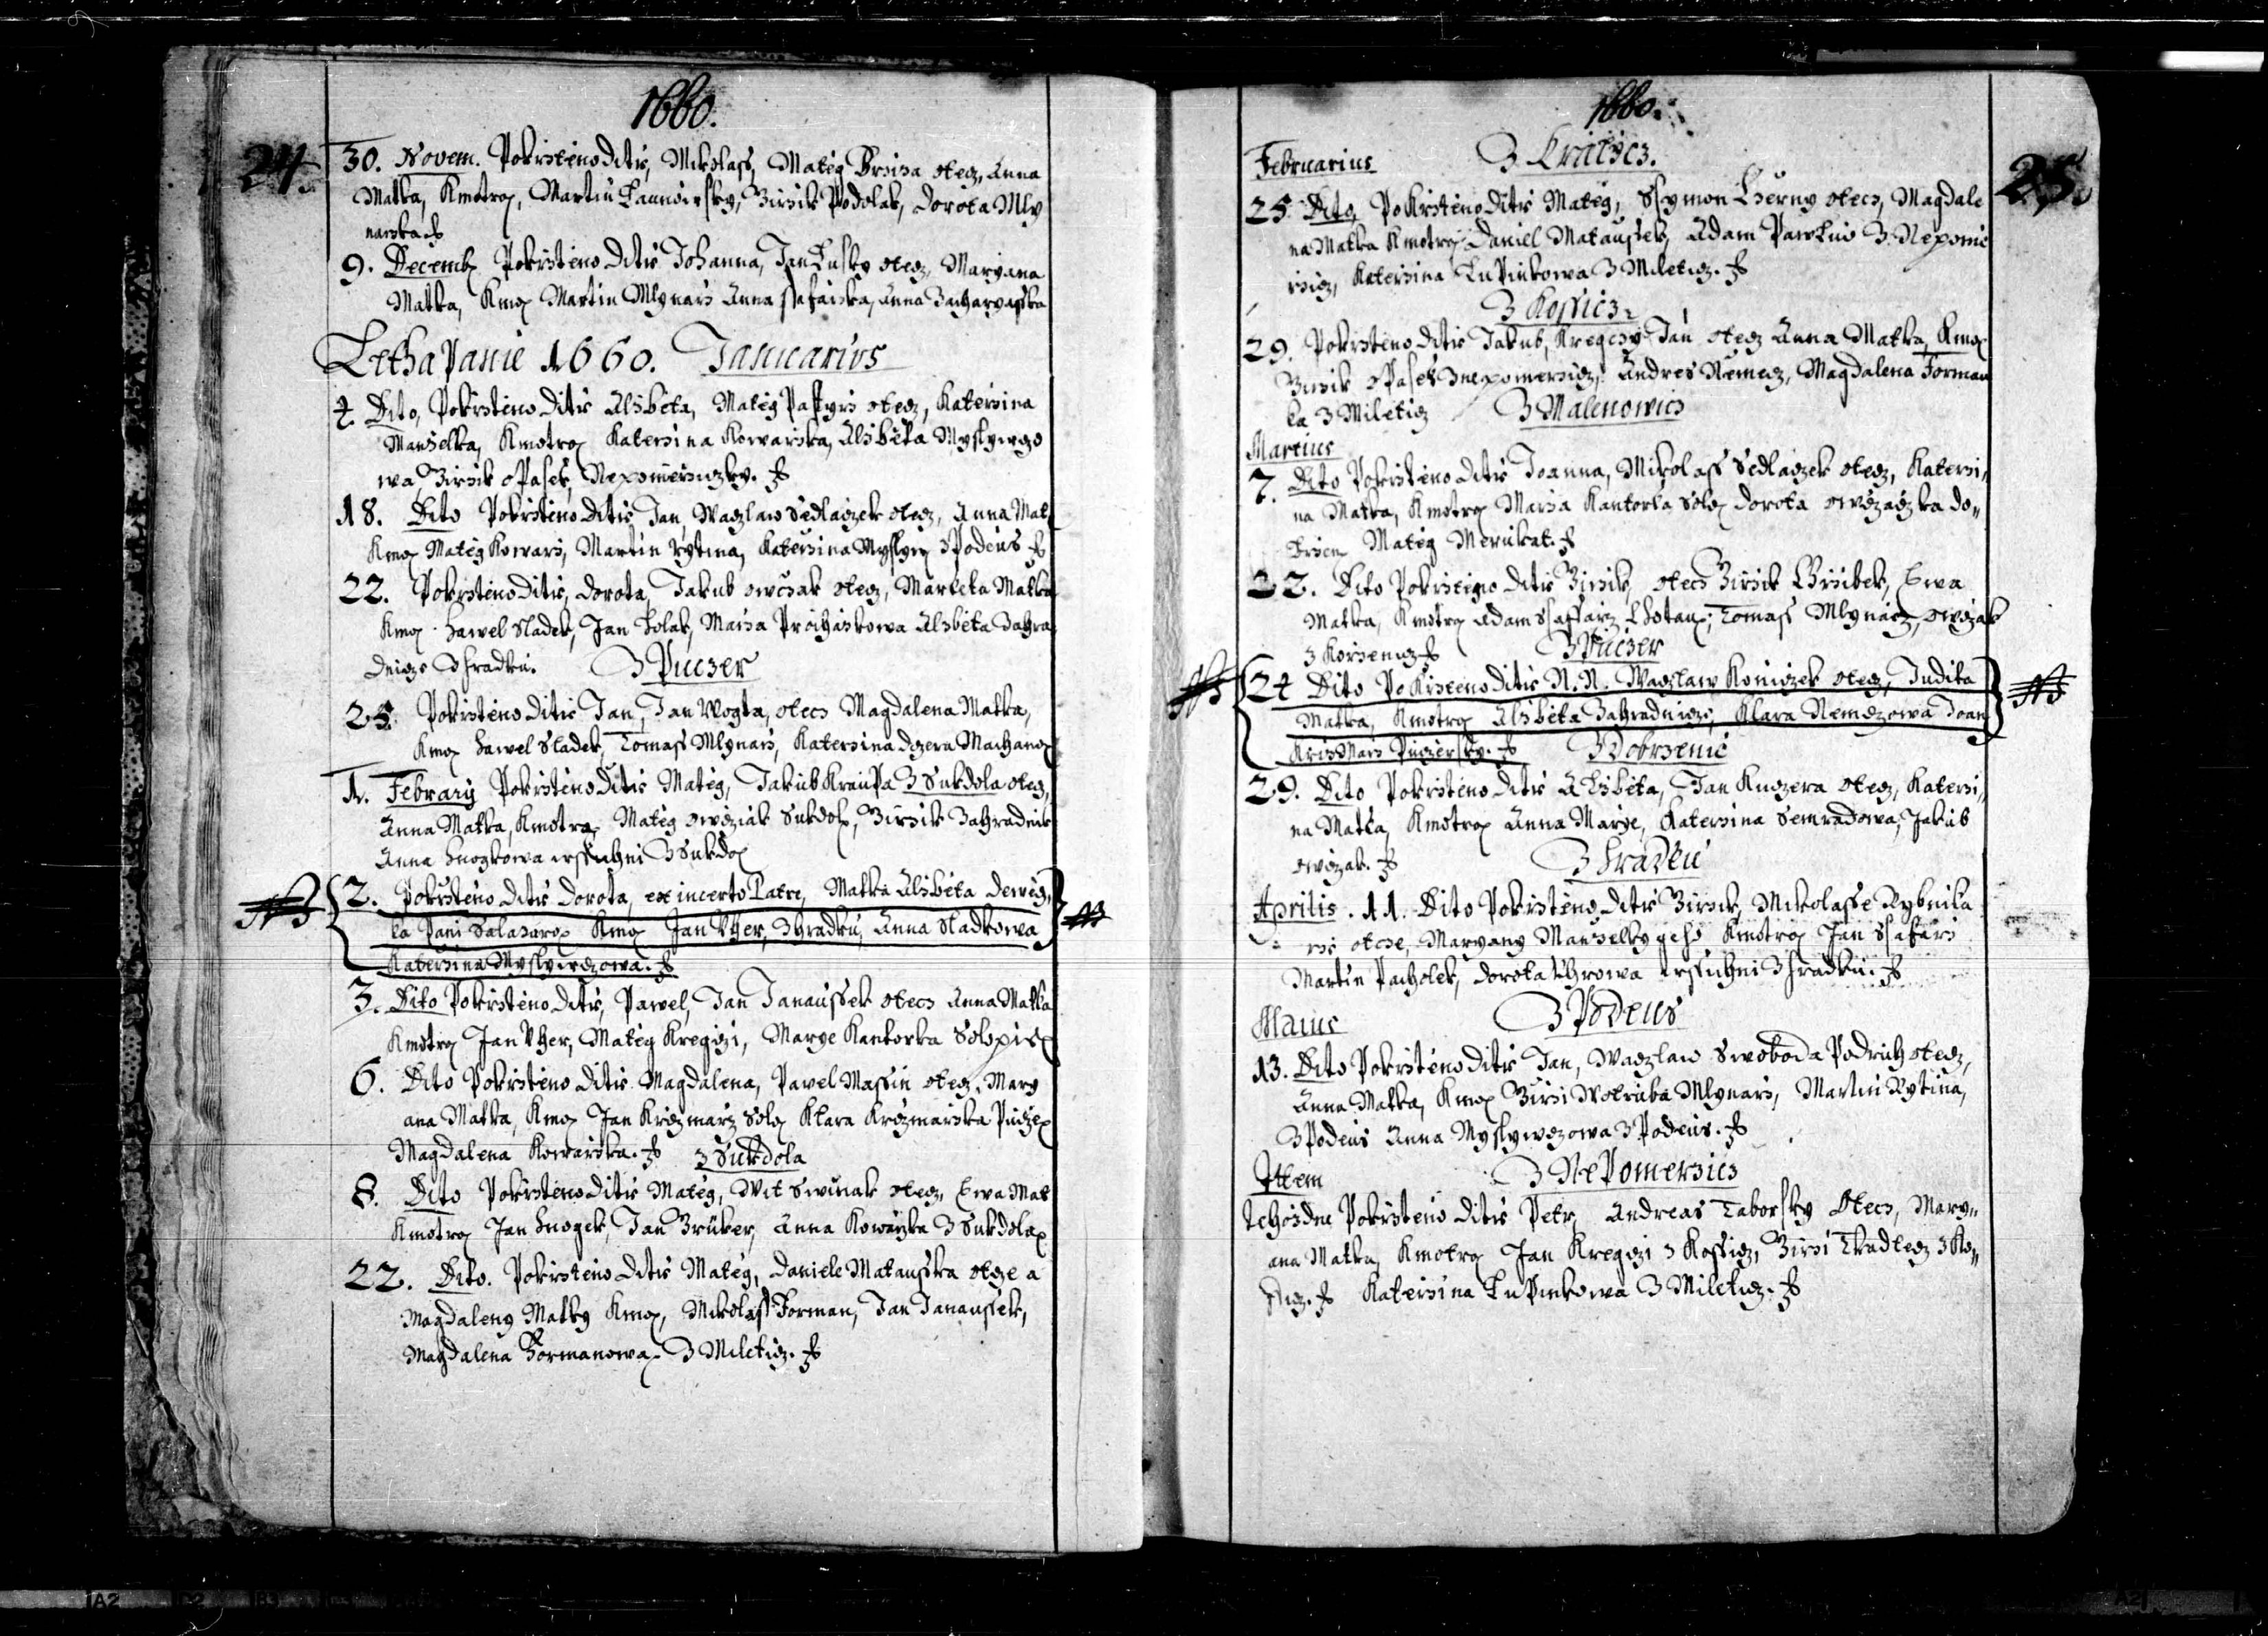 1660.
24.
30. Novem. Pokrsteno Ditie, Mikolass, Matieg Otecz, Anna
Matka, Kmotrz, Martin Zirzik Podolak, Dorota Mly
narska
9. Decemb Pokrsteno Ditie Johanna, Jan Lusky Otecz, Maryana
Matka, Kmo Martin Mlynarz Anna Ssafarska, Anna
Letha Panie 1660. Januarius
4 Dito, Pokrsteno Ditie Alzbeta, Matieg Pastyrz otecz, Katerzina
Manzelka, Kmotrz Katerzina Kowarska, Alzbeta Myslywczo
wa Zirzik oPasek, Nepomerziczky.
18. Dito Pokrsteno Ditie Jan, Waczlaw Sedlaczek otecz, Anna Mat
Kmo Matieg Kowarz, Martin Rytina, Katerzina Myslyw z Podeus
22. Pokrsteno Ditie, Dorota, Jakub owczak otecz, Marketa Matka
Kmo Hawel Sladek, Jan Polak, Marza Prochaskowa Alzbeta Zahra
dnicze z Hradku. Z Puczer
25. Pokrsteno Ditie Jan, Jan Wogta, otecz Magdalena Matka,
Kmo Hawel Sladek, Tomass Mlynarz, Katerzina dczera
1. Februarij Pokrsteno Ditie Matieg, Jakub Kraupa z Sukdola otecz,
Anna Matka, Kmotrz Matieg owcziak Sukdol, Zirzik Zahradnik
Anna Hnogkowa wssichni z Sukdo
NB 2. Pokrsteno Ditie Dorota, ex incerto Patre, Matka Alzbeta dewcz, NB
ka Pani Kmo Jan Vher, z Hradku, Anna Sladkowa
Katerzina Myslywczowa.
3. Dito Pokrsteno Ditie, Pawel, Jan Janaussek otecz Anna Matka
Kmotrz Jan Vher, Matieg Kregczi, Marye Kantorka
6. Dito Pokrsteno Ditie Magdalena, Pawel Massin otecz, Mary
ana Matka, Kmo Jan Krczmarz Solo Klara Krczmarska Puczer
Magdalena Kowarska. z Sukdola
8. Dito Pokrsteno Ditie Matieg, Wit Swinak otecz, Ewa Mat
Kmotrz Jan Hnogek, Jan Brüker, Anna Kowarzka z Sukdola
22. Dito. Pokrsteno Ditie Matieg, Daniele Matausska otcze a
Magdaleny Matky Kmo, Mikolass Forman, Jan Janaussek,
Magdalena Formanowa z Mileticz.
1660.
25.
Februarius Z Kraticz.
25 Dito, Pokrsteno Ditie Matieg, Ssymon Czerny otecz, Magdale
na Matka Kmotrz Daniel Mataussek, Adam Pawlu z Nepome
rzicz, Katerzina Lupinkowa z Mileticz.
Z Kossicz
29. Pokrsteno Ditie Jakub, Kregczy Jan otecz Anna Matka, Kmo
Zirzik oPasek z nepomerzicz, Andres Nemecz, Magdalena Forman
ka z Mileticz Z Malenowicz
Martius
7. Dito Pokrsteno Ditie Joanna, Mikolass Sedlaczek otecz, Katerzi,,
na Matka, Kmotrz Marza Kantorka Solo Dorota owczaczka do,,
brzen Matieg Merukat.
22. Dito Pokrsteno Ditie Zirzik, otecz Zirzik Hrzibek, Ewa
Matka, Kmotrz Adam Ssaffarz Lhotau, Tomass Mlynarz, owczak
z Korzenicz Z Puczer
NB 24 Dito Pokrsteno Ditie N. N. Waczlaw Koniczek otecz, Judita NB
Matka, Kmotrz Alzbeta Zahradnicze, Klara Nemczowa Joan
Puczersky. Z Dobrzenic
29. Dito Pokrsteno Ditie Alzbeta, Jan Kuczera otecz, Katerzi,,
na Matka, Kmotrz Anna Marye, Katerzina Semradowa, Jakub
owczak.
Z Hradku
Aprilis. 11. Dito Pokrsteno Ditie Zirzik, Mikolasse Rybnika
rze otcze, Maryany Manzelky geho Kmotrz Jan Ssafarz
Martin Pacholek, Dorota Vhrowa wssichni z Hradku.
Maius Z Podeus
13. Dito Pokrsteno Ditie Jan, Waczlaw Swoboda Podruh otecz,
Anna Matka, Kmo Zirzi Wotruba Mlynarz, Martin Rytina,
z Podeus Anna Myslywczowa z Podeus.
Item Z Nepomerzicz
tehozdne Pokrsteno Ditie Petr, Andreas Taborsky Otecz, Mary,,
ana Matka, Kmotrz Jan Kregczi z Kossicz, Zirzi Tkadlecz z Ko,,
ssicz. Katerzina Lupinkowa z Mileticz.